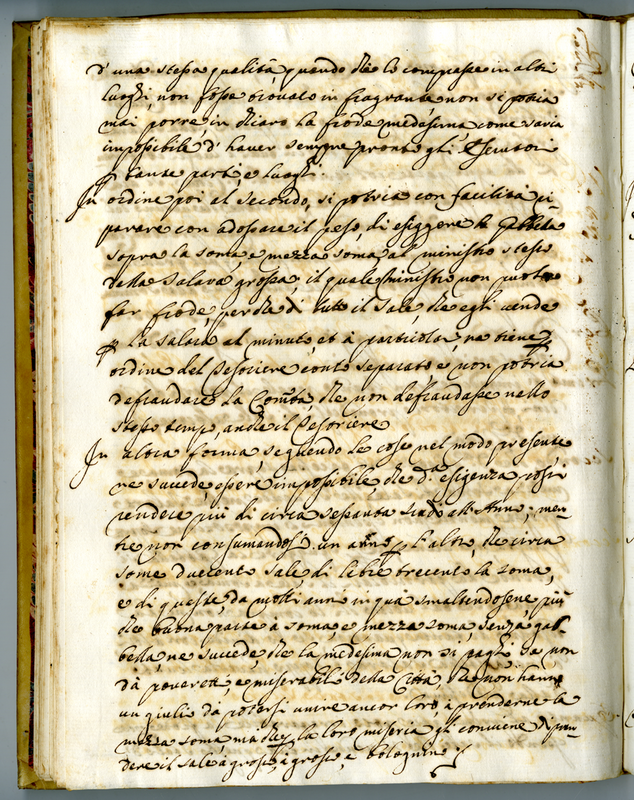 d'una stessa qualità, quando che lo comprasse in altri
luoghi, non fosse trovato in fragrante non si potria
mai porre in chiaro la frode medesima, come saria
impossibile d'haver sempre pronti gli Esecutori
p tante parti, e luoghi.
In ordine poi al secondo, si potria con facilità ri-
parare con adossare il peso, di esiggere la Gabbella
sopra la soma, e mezza soma al ministro stesso
della Salara grossa; il quale ministro non puote
far frode, perche di tutto il sale, che egli vende
p la salara al minuto, et a particolari, ne tiene p
ordine del Tesoriere conto separato, e non potria
defraudare la Com.tà, che non defraudasse nello
stesso tempo, anche il Tesoriere
In altra forma, seguendo le cose nel modo presente
ne succede, essere impossibile, che d.a esigenza possa
rendere più di circa sessanta scudi all'Anno; men-
tre non consumandosi un anno p l'altro, che circa
some duecento sale di libre trecento la soma,
e di queste, da molti anni in qua smaltendosene, più
che buona parte à soma, e mezza soma, senza gab-
bella, ne succede, che la medesima non si paghi se non
dà poveretti, e miserabili della Città, che non hanno
un giulio dà potersi unire ancor loro, à prenderne la
mezza soma, ma che p la loro miseria gli conviene di pren-
dere il sale à grosso, à grosso, e bolognino